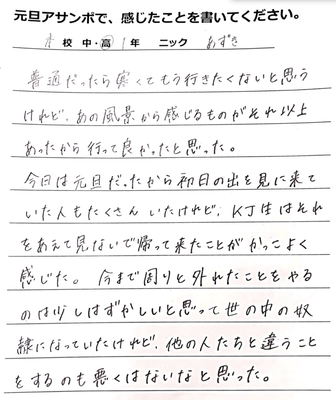 元旦アサンポで、感じたことを書いてください。
本校 中・高 1年 ニック あずき
普通だったら寒くてもう行きたくないと思う
けれど、あの風景から感じるものがそれ以上
あったから行って良かったと思った。
今日は元旦だったから初日の出を見に来て
いた人もたくさんいたけれど、KJ生はそれ
をあえて見ないで帰って来たことがかっこよく
感じた。 今まで周りと外れたことをやる
のは少しはずかしいと思って世の中の奴
隷になっていたけれど、他の人たちと違うこと
をするのも悪くはないなと思った。